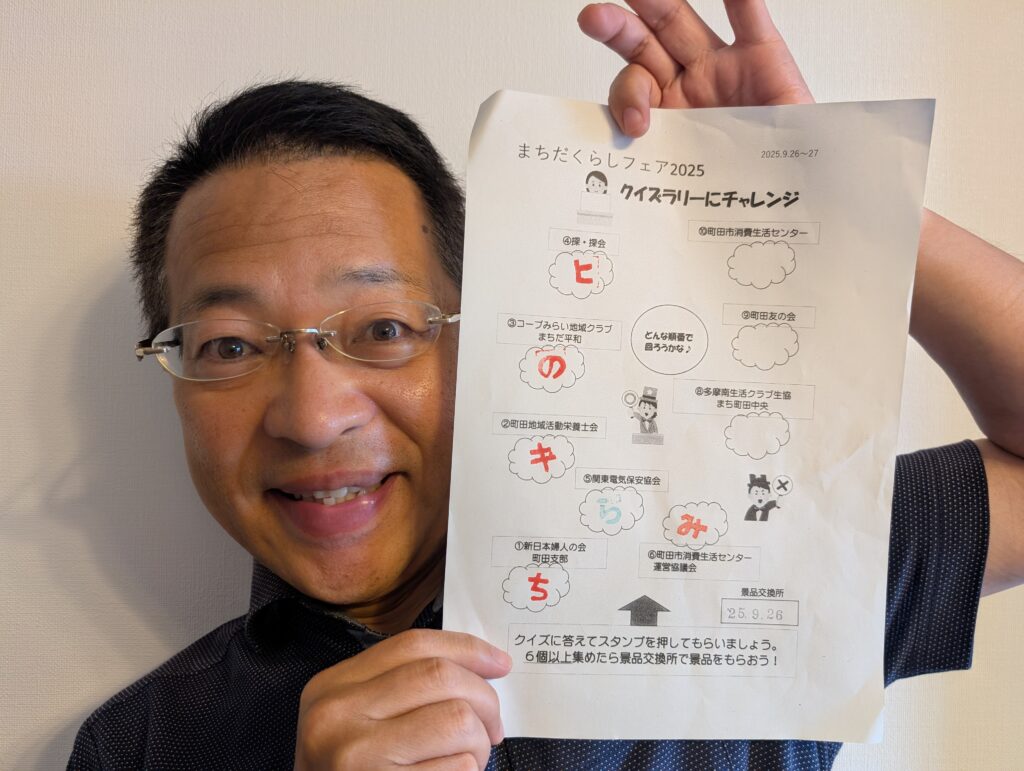 まちだくらしフェア2025
2025.9.26～27
クイズラリーにチャレンジ
④探・探会
ヒ
⑩町田市消費生活センター
③コープみらい地域クラブ
まちだ平和
の
どんな順番で
回ろうかな♪
⑨町田友の会
②町田地域活動栄養士会
キ
⑧多摩南生活クラブ生協
まち町田中央
⑤関東電気保安協会
ら
み
⑥町田市消費生活センター
運営協議会
①新日本婦人の会
町田支部
ち
景品交換所
'25.9.26
クイズに答えてスタンプを押してもらいましょう。
６個以上集めたら景品交換所で景品をもらおう！